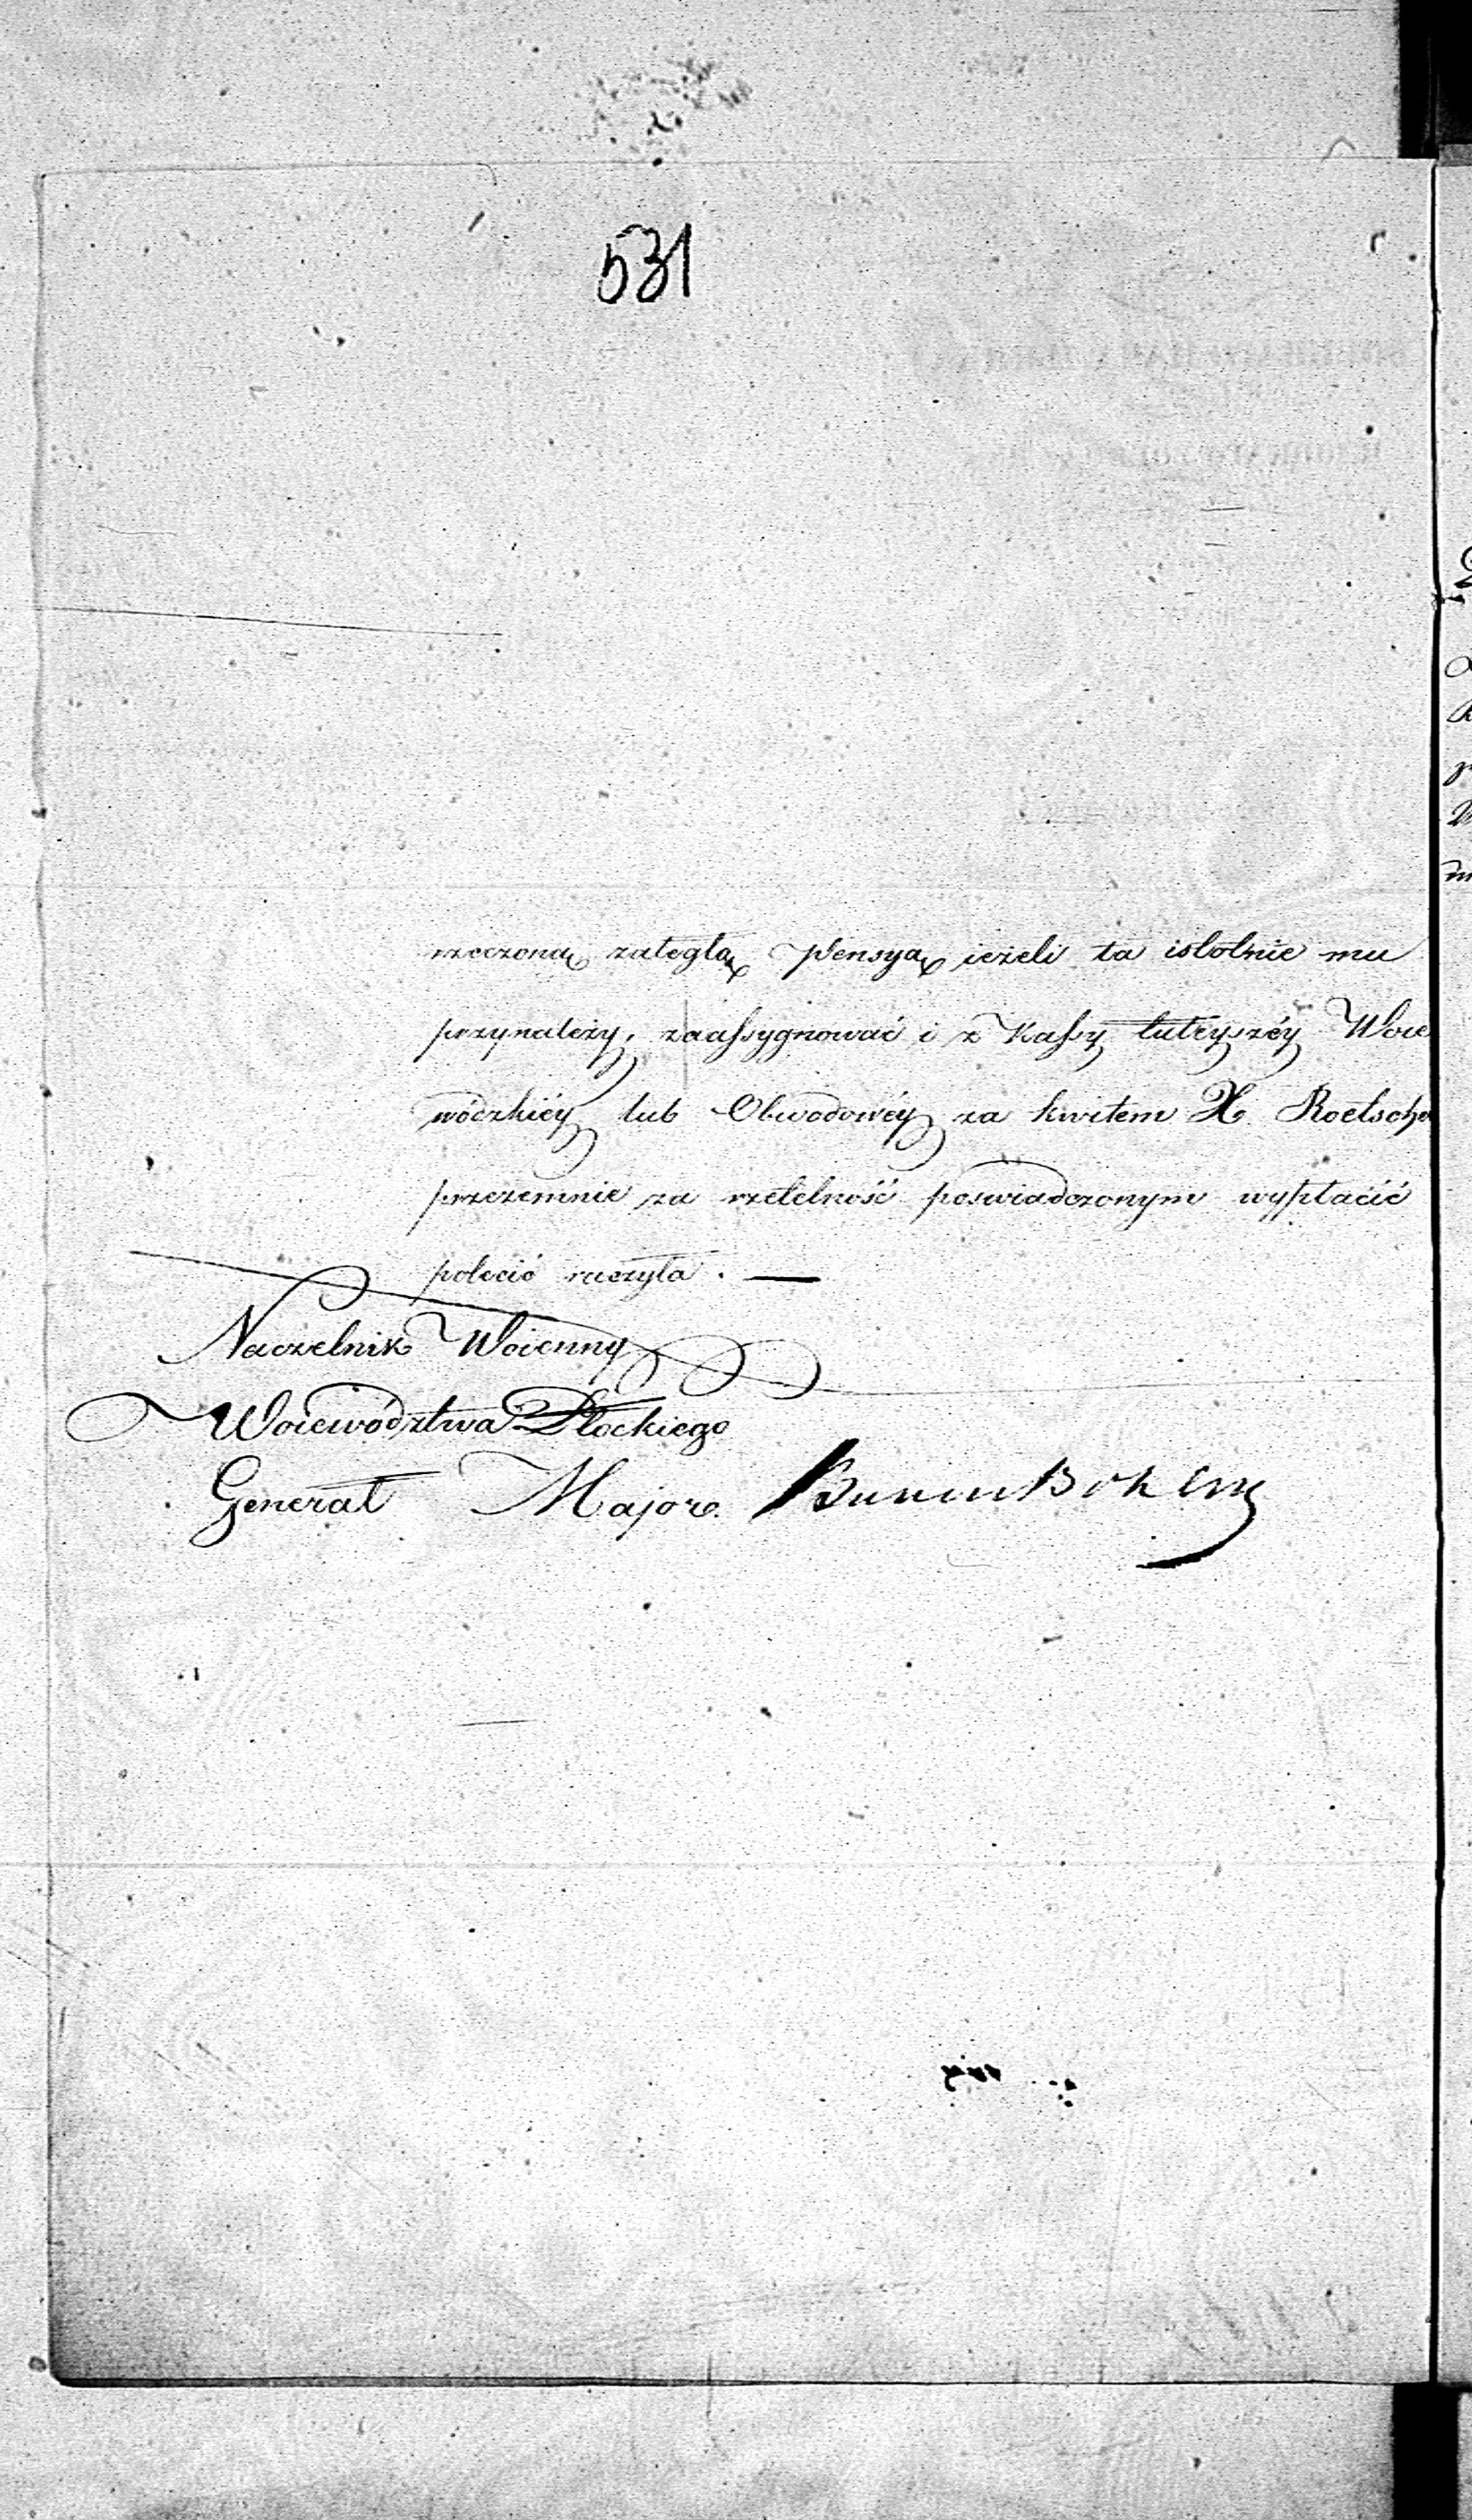 531
rzeczoną zaległą Pensyą ieżeli ta istotnie mu
przynależy, zaassygnować i z Kassy tuteyszéy Woie
wódzkiéy lub Obwodowéy za kwitem X. Roetscha
przezemnie za rzetelność poswiadczonym wypłacić
polecić raczyła. —
Naczelnik Woienny
Woiewództwa Płockiego
Generał Major